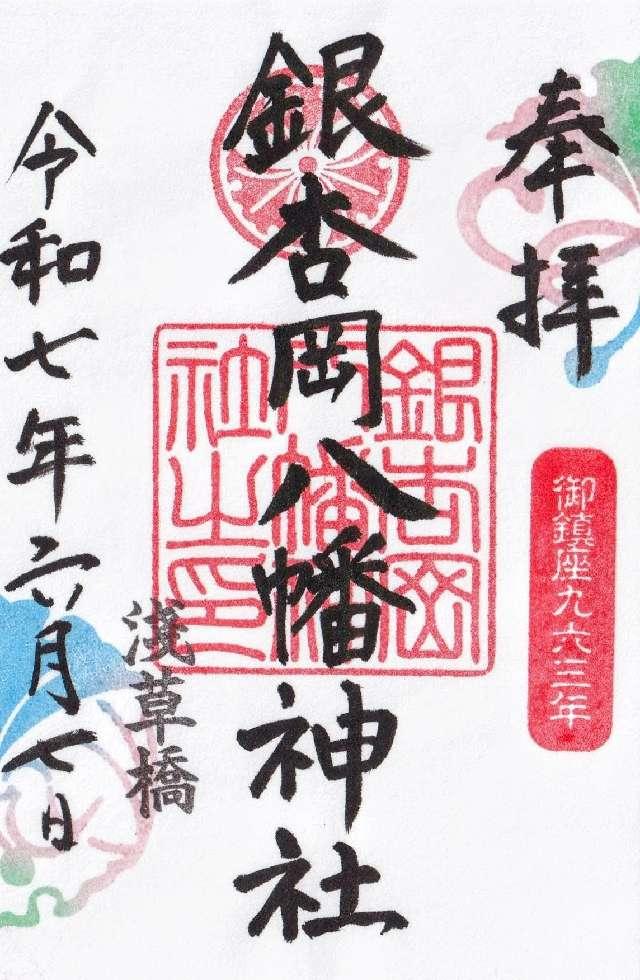 奉拝
御鎮座九六三年
銀杏岡八幡神社
銀杏岡
八幡神
社之印
浅草橋
令和七年六月七日